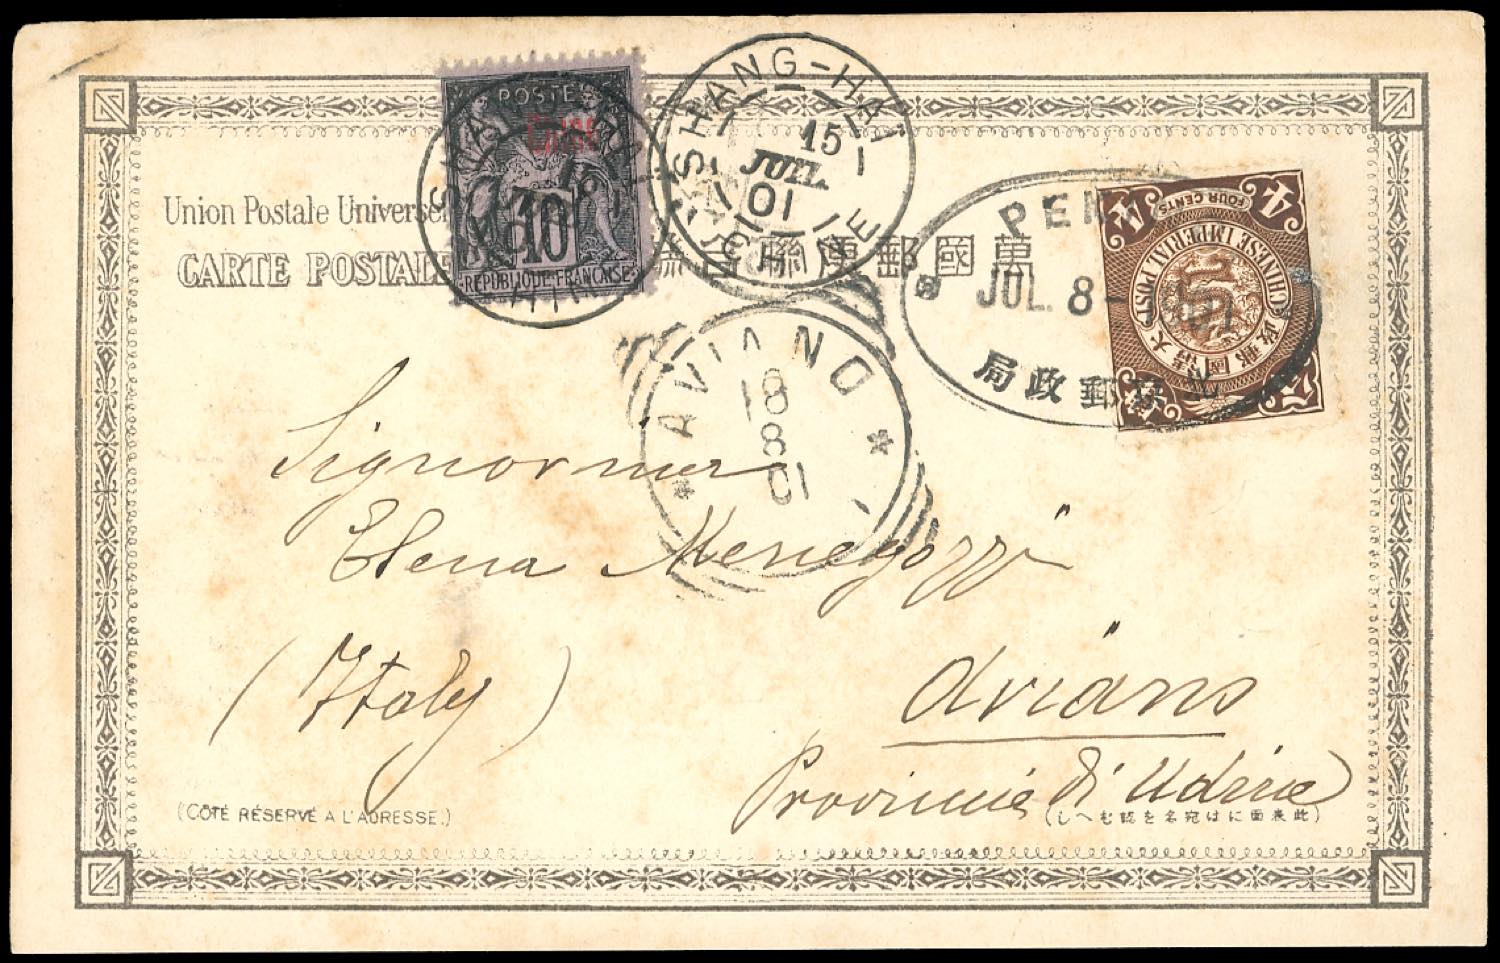 POSTES
Chine
10
REPUBLIQUE FRANÇAISE
SHANG-HAI
15
JUIL.
01
CHINE
Union Postale Universel
CARTE POSTALE
萬國郵便聯合
PEK
JUL. 8
局政郵
4 FOUR CENTS 4
CHINESE IMPERIAL POST
大清國郵政
AVIANO
18
8
01
Signorina
Elena Menegozzi
(Italy)
Aviano
Provincia di Udine
(CÔTÉ RÉSERVÉ A L'ADRESSE.)
(此表面には宛名を認むへし)